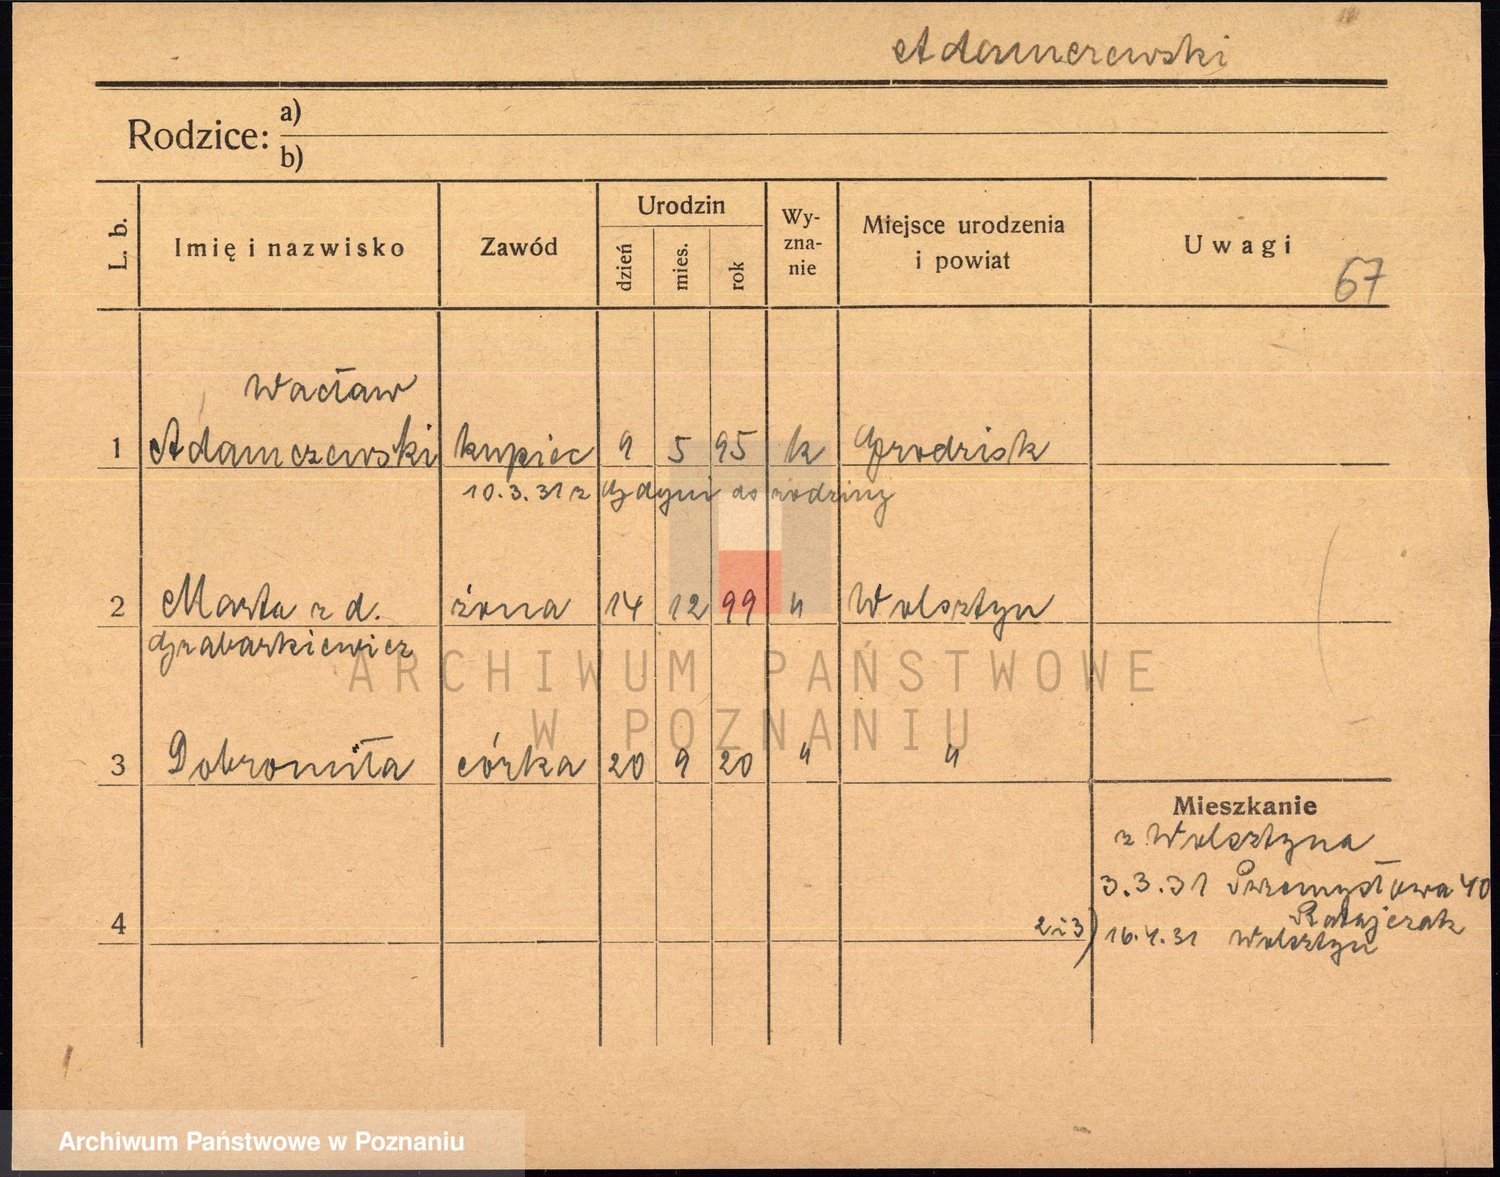 Adamczewski
Rodzice: a)
b)
L. b. Imię i nazwisko Zawód Urodzin dzień mies. rok Wy-zna-nie Miejsce urodzenia i powiat Uwagi
67
Wacław
1 Adamczewski kupiec 9 5 95 k Grodzisk
10.3.31 z Gdyni do rodziny
2 Marta z d. żona 14 12 99 " Wolsztyn
Grabarkiewicz
ARCHIWUM PAŃSTWOWE
W POZNANIU
3 Dobromiła córka 20 9 20 " "
Mieszkanie
z Wolsztyna
3.3.31 Przemysłowa 40
Ratajczak
4 2 i 3) 16.4.31 Wolsztyn
Archiwum Państwowe w Poznaniu